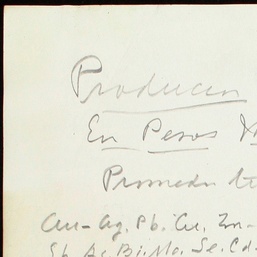 Producen
En Pesos
Promedu
Au-Ag. Pb. Cu. Zn-
Sb. As. Bi. Mo. Se. Cd.